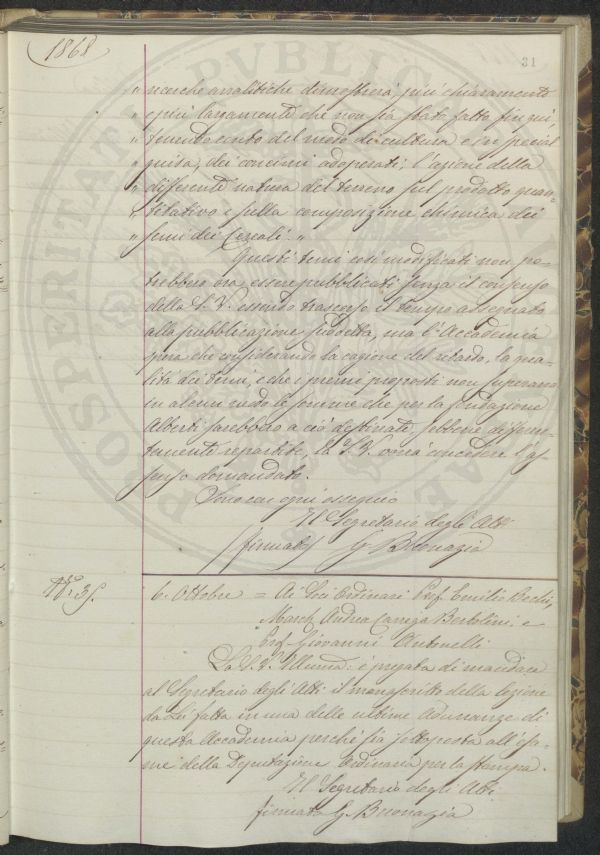 1868
31
" ricerche analitiche dimostrerà più chiaramente
" e più largamente che non sia stato fatto fin qui,
" tenendo conto del modo di cultura e in special
" guisa, dei concimi adoperati, l'azione della
" differente natura del terreno sul prodotto quan-
" titativo e sulla composizione chimica dei
" semi dei Cereali. "
Questi temi così modificati non po-
trebbero ora essere pubblicati senza il consenso
della S. V. essendo trascorso il tempo assegnato
alla pubblicazione suddetta, ma l'Accademia
spera che considerando la cagione del ritardo, la qua-
lità dei temi, e che i premi proposti non superano
in alcun modo le somme che per la fondazione
Alberti sarebbero a ciò destinate, sebbene differen-
temente repartite, la S. V. vorrà concedere l'as-
senso domandato.
Sono con ogni ossequio
Il Segretario degli Atti
(firmato) G. Buonazia
N°. 35.
6. Ottobre = Ai Soci Ordinari Prof. Emilio Bechi,
March. Andrea Carega Bertolini e
Prof. Giovanni Antonelli
La S. V. Illma. è pregata di mandare
al Segretario degli Atti il manoscritto della lezione
da Lei fatta in una delle ultime Adunanze di
questa Accademia perchè sia sottoposta all'esa-
me della Deputazione Ordinaria per la stampa.
Il Segretario degli Atti
firmato G. Buonazia
PROSPERITATI PUBLICAE AUGENDAE